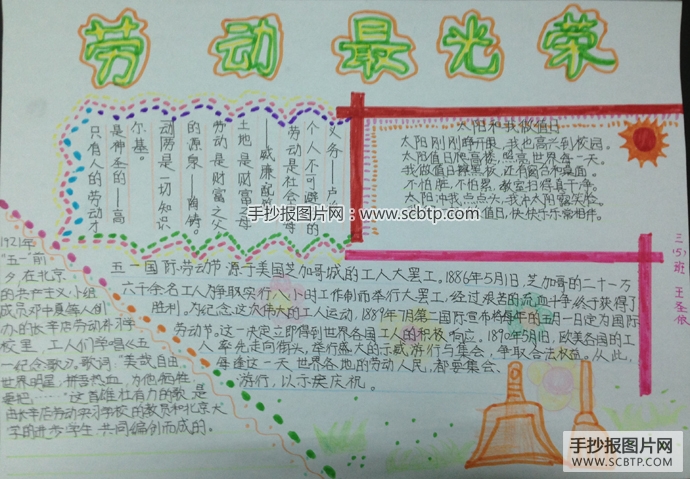 劳动最光荣
只有人的劳动才
是神圣的——高
尔基。
动劳是一切知识
的源泉——陶铸。
劳动是财富之父
土地是财富之母
——威廉配第
劳动是社会中每
个人不可避免的
义务——卢
太阳和我做值日
太阳刚刚睁开眼,我也高兴到校园。
太阳值日爬高楼,照亮世界每一天。
我做值日擦黑板,还有窗台和桌面。
不怕脏,不怕累,教室扫得真干净。
太阳冲我点点头,我冲太阳露笑脸。
值日,快快乐乐常相伴。
三(5)班 王圣
1921年
“五一”前
夕,在北京
的共产主义小组
成员邓中夏等人创
办的长辛店劳动补习学
校里,工人们学唱《五
一纪念歌》。歌词:“美哉自由,
世界明星,拼吾热血,为他牺牲,
要把……”这首雄壮有力的歌,是
由长辛店劳动实习学校的教员和北京大
学的进步学生共同编创而成的。
五一国际劳动节源于美国芝加哥城的工人大罢工。1886年5月1日,芝加哥的二十一万
六千余名工人为争取实行八小时工作制而举行大罢工,经过艰苦的流血斗争,终于获得了
胜利。为纪念这次伟大的工人运动,1889年7月第二国际宣布将每年的五月一日定为国际
劳动节。这一决定立即得到世界各国工人的积极响应。1890年5月1日,欧美各国的工
人率先走向街头,举行盛大的示威游行与集会,争取合法权益。从此,
每逢这一天世界各地的劳动人民,都要集会、
游行,以示庆祝。
手抄报图片网:www.scbtp.com
手抄报图片网
WWW.SCBTP.COM